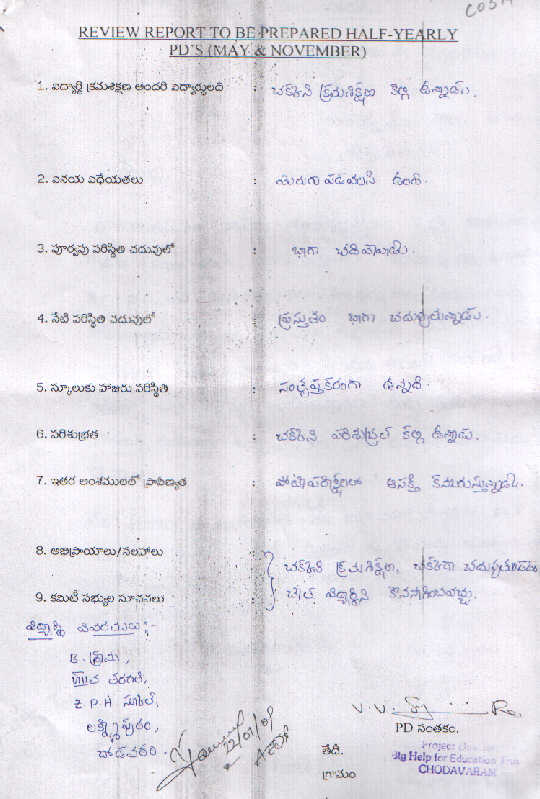 REVIEW REPORT TO BE PREPARED HALF-YEARLY
PD'S (MAY & NOVEMBER)
1. విద్యార్థి క్రమశిక్షణ అందరి విద్యార్థులతో : చక్కని క్రమశిక్షణ కల్గి ఉన్నాడు.
2. వినయ విధేయతలు : మెరుగు పడవలసి ఉంది.
3. పూర్వపు పరిస్థితి చదువులో : బాగా చదివేవాడు.
4. నేటి పరిస్థితి చదువులో : ప్రస్తుతం బాగా చదువుతున్నాడు.
5. స్కూలుకు హాజరు పరిస్థితి : సంతృప్తికరంగా ఉన్నది.
6. పరిశుభ్రత : చక్కని పరిశుభ్రత కల్గి ఉన్నాడు.
7. ఇతర అంశములలో ప్రావీణ్యత : ఆసక్తి కనబరుస్తున్నాడు.
8. అభిప్రాయాలు/సలహాలు : చక్కని క్రమశిక్షణ, చక్కగా
9. కమిటీ సభ్యుల సూచనలు : విద్యార్థిని కొనసాగించవచ్చు.
విద్యార్థి వివరములు :-
కె. శ్రీను,
తరగతి,
Z.P.H స్కూల్,
లక్ష్మీపురం,
చోడవరం.
22/01/09
PD సంతకం.
తేది.
గ్రామం
Big Help for Education
CHODAVARAM